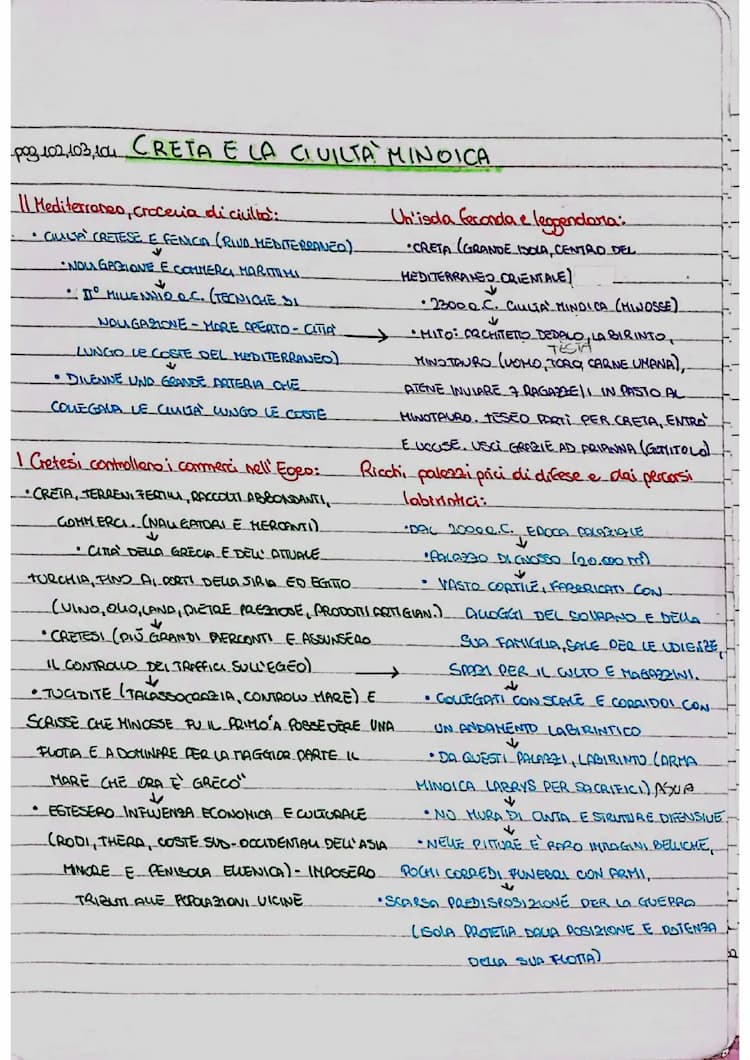 pag 102,103,104 CRETA E LA CIVILTA' MINOICA
Il Mediterraneo, crocevia di civiltà:
• CIVILTA' CRETESE E FENICIA (RIVA MEDITERRANEO)
↓
• NAVIGAZIONE E COMMERCI MARITTIMI
↓
• II° MILLENNIO a.C. (TECNICHE DI
NAVIGAZIONE - MARE APERTO - CITTA'
LUNGO LE COSTE DEL MEDITERRANEO)
↓
• DIVENNE UNA GRANDE ARTERIA CHE
COLLEGAVA LE CIVILTA' LUNGO LE COSTE
→
Un'isola feconda e leggendaria:
• CRETA (GRANDE ISOLA, CENTRO DEL
MEDITERRANEO ORIENTALE)
↓
• 2300 a.C. CIVILTA' MINOICA (MINOSSE)
↓
• MITO: ARCHITETO DEDALO, LABIRINTO,
TESTA
MINOTAURO (UOMO, TORO, CARNE UMANA),
ATENE INVIARE 7 RAGAZZE/I IN PASTO AL
MINOTAURO. TESEO PARTÌ PER CRETA, ENTRÒ
E UCCISE. USCÌ GRAZIE AD ARIANNA (GOMITOLO)
I Cretesi controllano i commerci nell'Egeo:
• CRETA, TERRENI FERTILI, RACCOLTI ABBONDANTI,
COMMERCI. (NAVIGATORI E MERCANTI)
↓
• CITTA' DELLA GRECIA E DELL'ATTUALE
TURCHIA, FINO AI PORTI DELLA SIRIA ED EGITTO
(VINO, OLIO, LANA, PIETRE PREZIOSE, PRODOTTI ARTIGIAN.)
↓
• CRETESI (PIÙ GRANDI MERCANTI E ASSUNSERO
IL CONTROLLO DEI TRAFFICI SULL'EGEO)
↓
• TUCIDITE (TALASSOCRAZIA, CONTROLLO MARE) E
SCRISSE CHE MINOSSE FU IL PRIMO "A POSSEDERE UNA
FLOTTA E A DOMINARE PER LA MAGGIOR PARTE IL
MARE CHE ORA È GRECO"
↓
• ESTESERO INFLUENZA ECONOMICA E CULTURALE
(RODI, THERA, COSTE SUD-OCCIDENTALI DELL'ASIA
MINORE E PENISOLA ELLENICA) - IMPOSERO
TRIBUTI ALLE POPOLAZIONI VICINE
→
Ricchi palazzi privi di difese e dai percorsi
labirintici:
• DAL 2000 a.C. EPOCA PALAZIALE
↓
• PALAZZO DI CNOSSO (20.000 m²)
↓
• VASTO CORTILE, FABBRICATI CON
ALLOGGI DEL SOVRANO E DELLA
SUA FAMIGLIA, SALE PER LE UDIENZE,
SPAZI PER IL CULTO E MAGAZZINI.
↓
• COLLEGATI CON SCALE E CORRIDOI CON
UN ANDAMENTO LABIRINTICO
↓
• DA QUESTI PALAZZI, LABIRINTO (ARMA
MINOICA LABRYS PER SACRIFICI) ASCIA
↓
• NO MURA DI CINTA E STRUTTURE DIFENSIVE
↓
• NELLE PITTURE È RARO IMMAGINI BELLICHE,
POCHI CORREDI FUNEBRI CON ARMI.
↓
• SCARSA PREDISPOSIZIONE PER LA GUERRA
(ISOLA PROTETTA DALLA POSIZIONE E POTENZA
DELLA SUA FLOTTA)